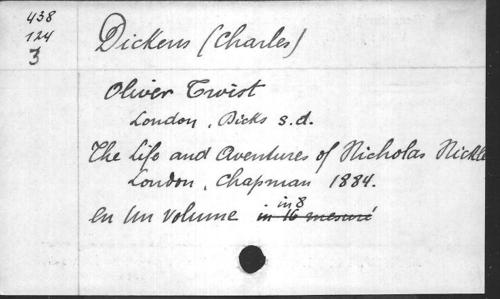 438
124
3
Dickens (Charles)
Oliver Twist
London, Dicks s.d.
The Life and Aventures of Nicholas Nickle
London, Chapman 1884.
in 8
en un volume in 16 mesuré